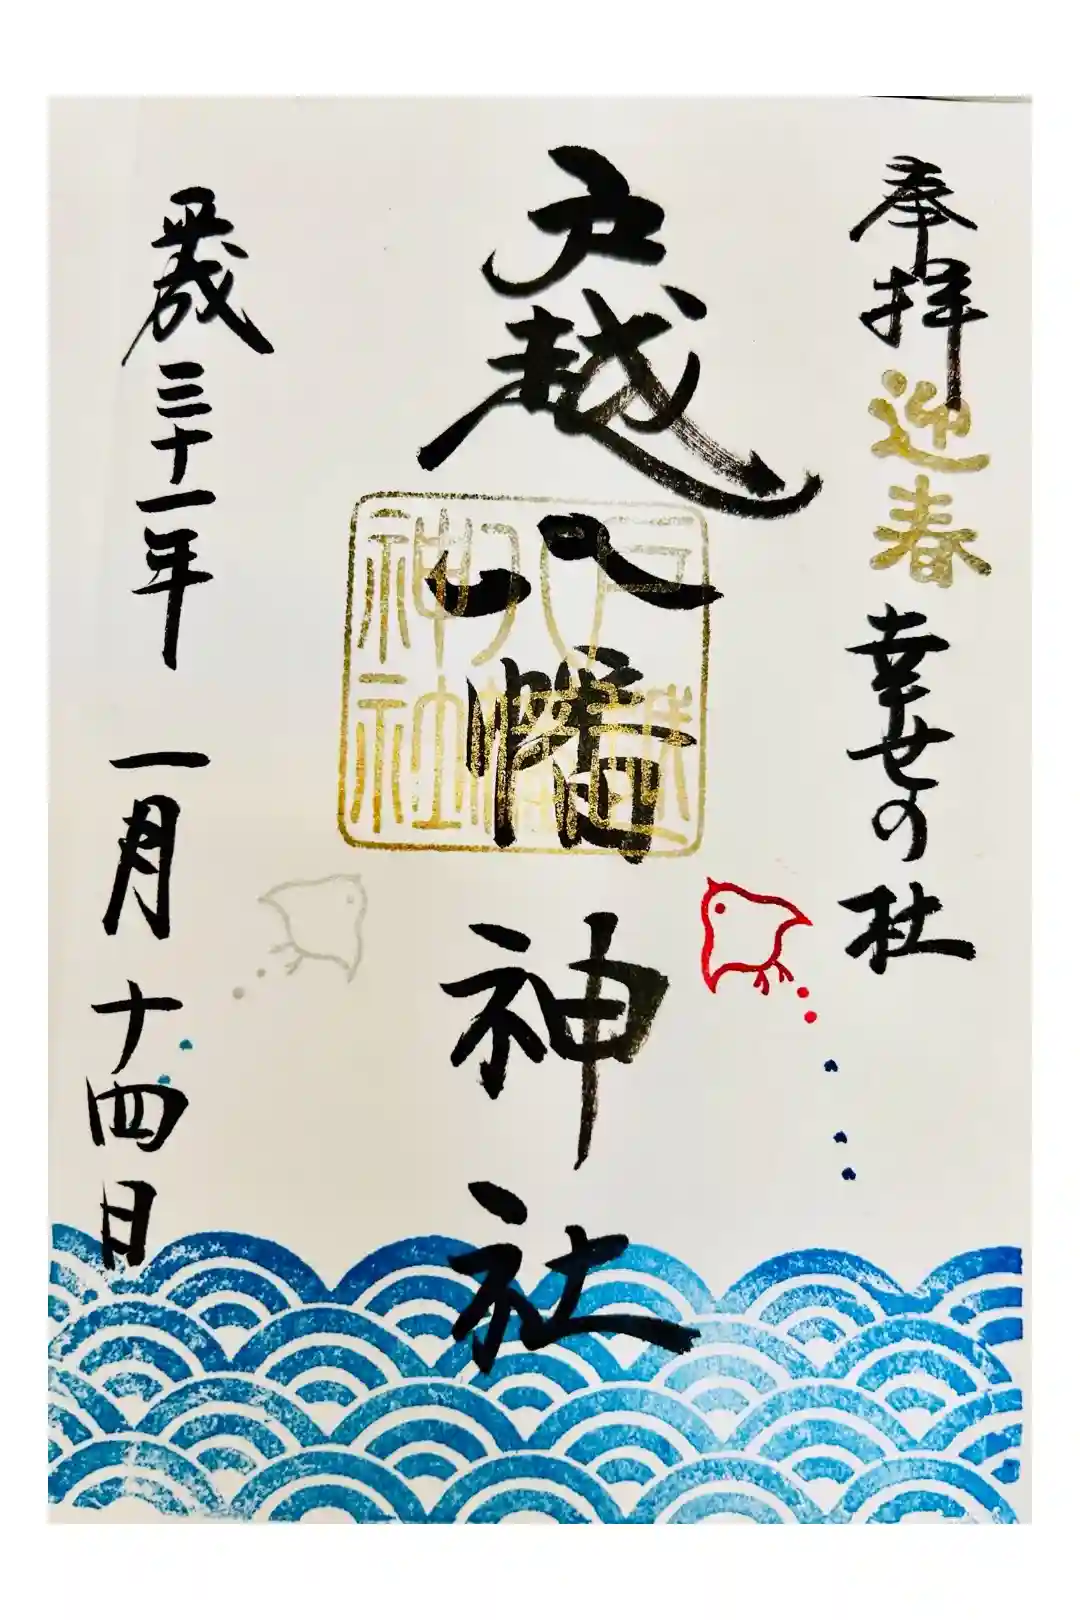 奉拝
迎春
幸せの社
戸越八幡神社
戸越
八幡
神社
平成三十一年 一月 十四日